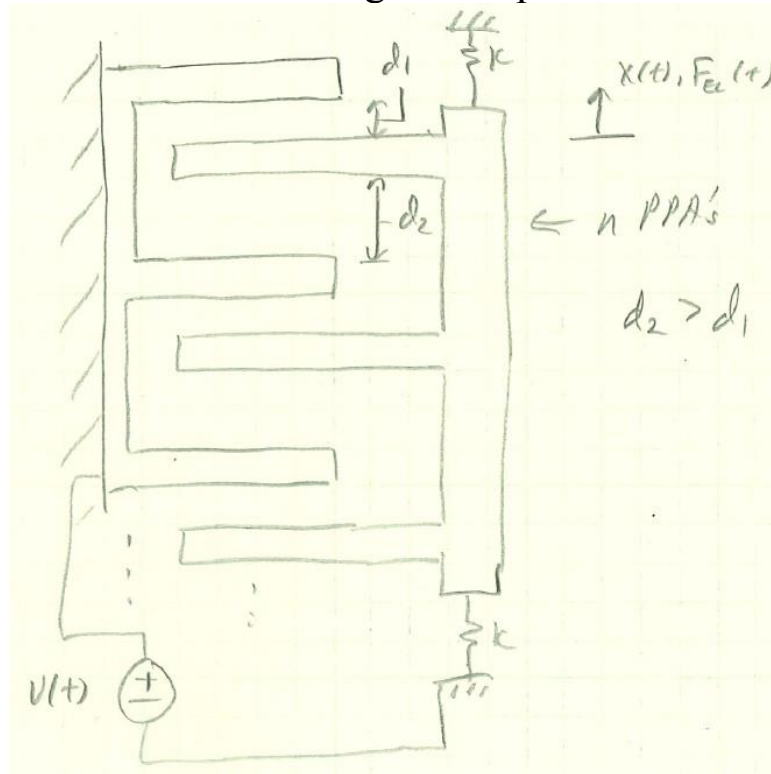 d₁
k
x(t), F_EL(t)
d₂
← n PPA's
d₂ > d₁
k
V(t)
+
−